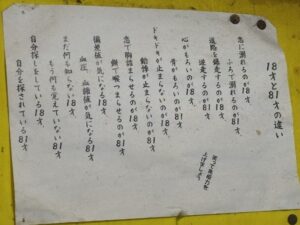 18才と81才の違い
恋に溺れるのが18才、
ふろで溺れるのが81才。
道路を暴走するのが18才、
逆走するのが81才。
心がもろいのが18才、
骨がもろいのが81才。
ドキドキが止まらないのが18才、
動悸が止まらないのが81才。
恋で胸詰まらせるのが18才、
餅で喉つまらせるのが81才。
偏差値が気になる18才、
血圧、血糖値が気になる81才。
まだ何も知らない18才、
もう何も覚えていない81才。
自分探しをしている18才、
自分を探されている81才。
笑って
上げましょう